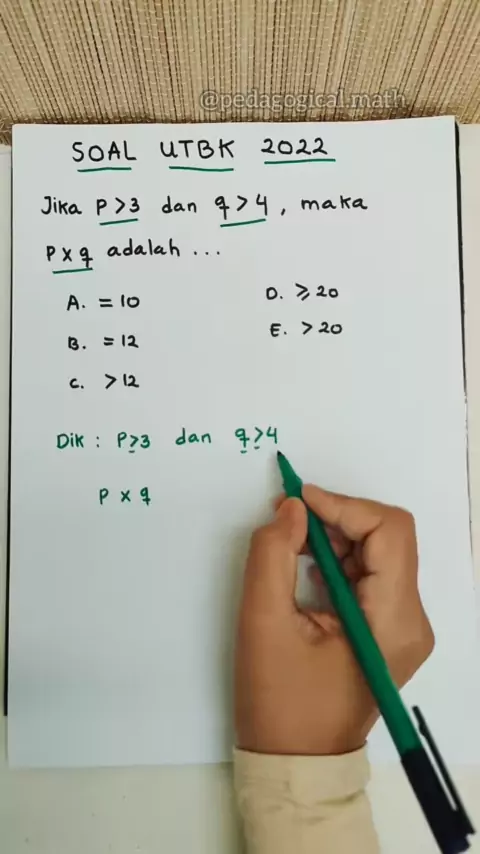 @pedagogical.math
SOAL UTBK 2022
Jika P > 3 dan q > 4, maka
P x q adalah ...
A. = 10
B. = 12
C. > 12
D. ⩾ 20
E. > 20
Dik : P > 3 dan q > 4
P x q